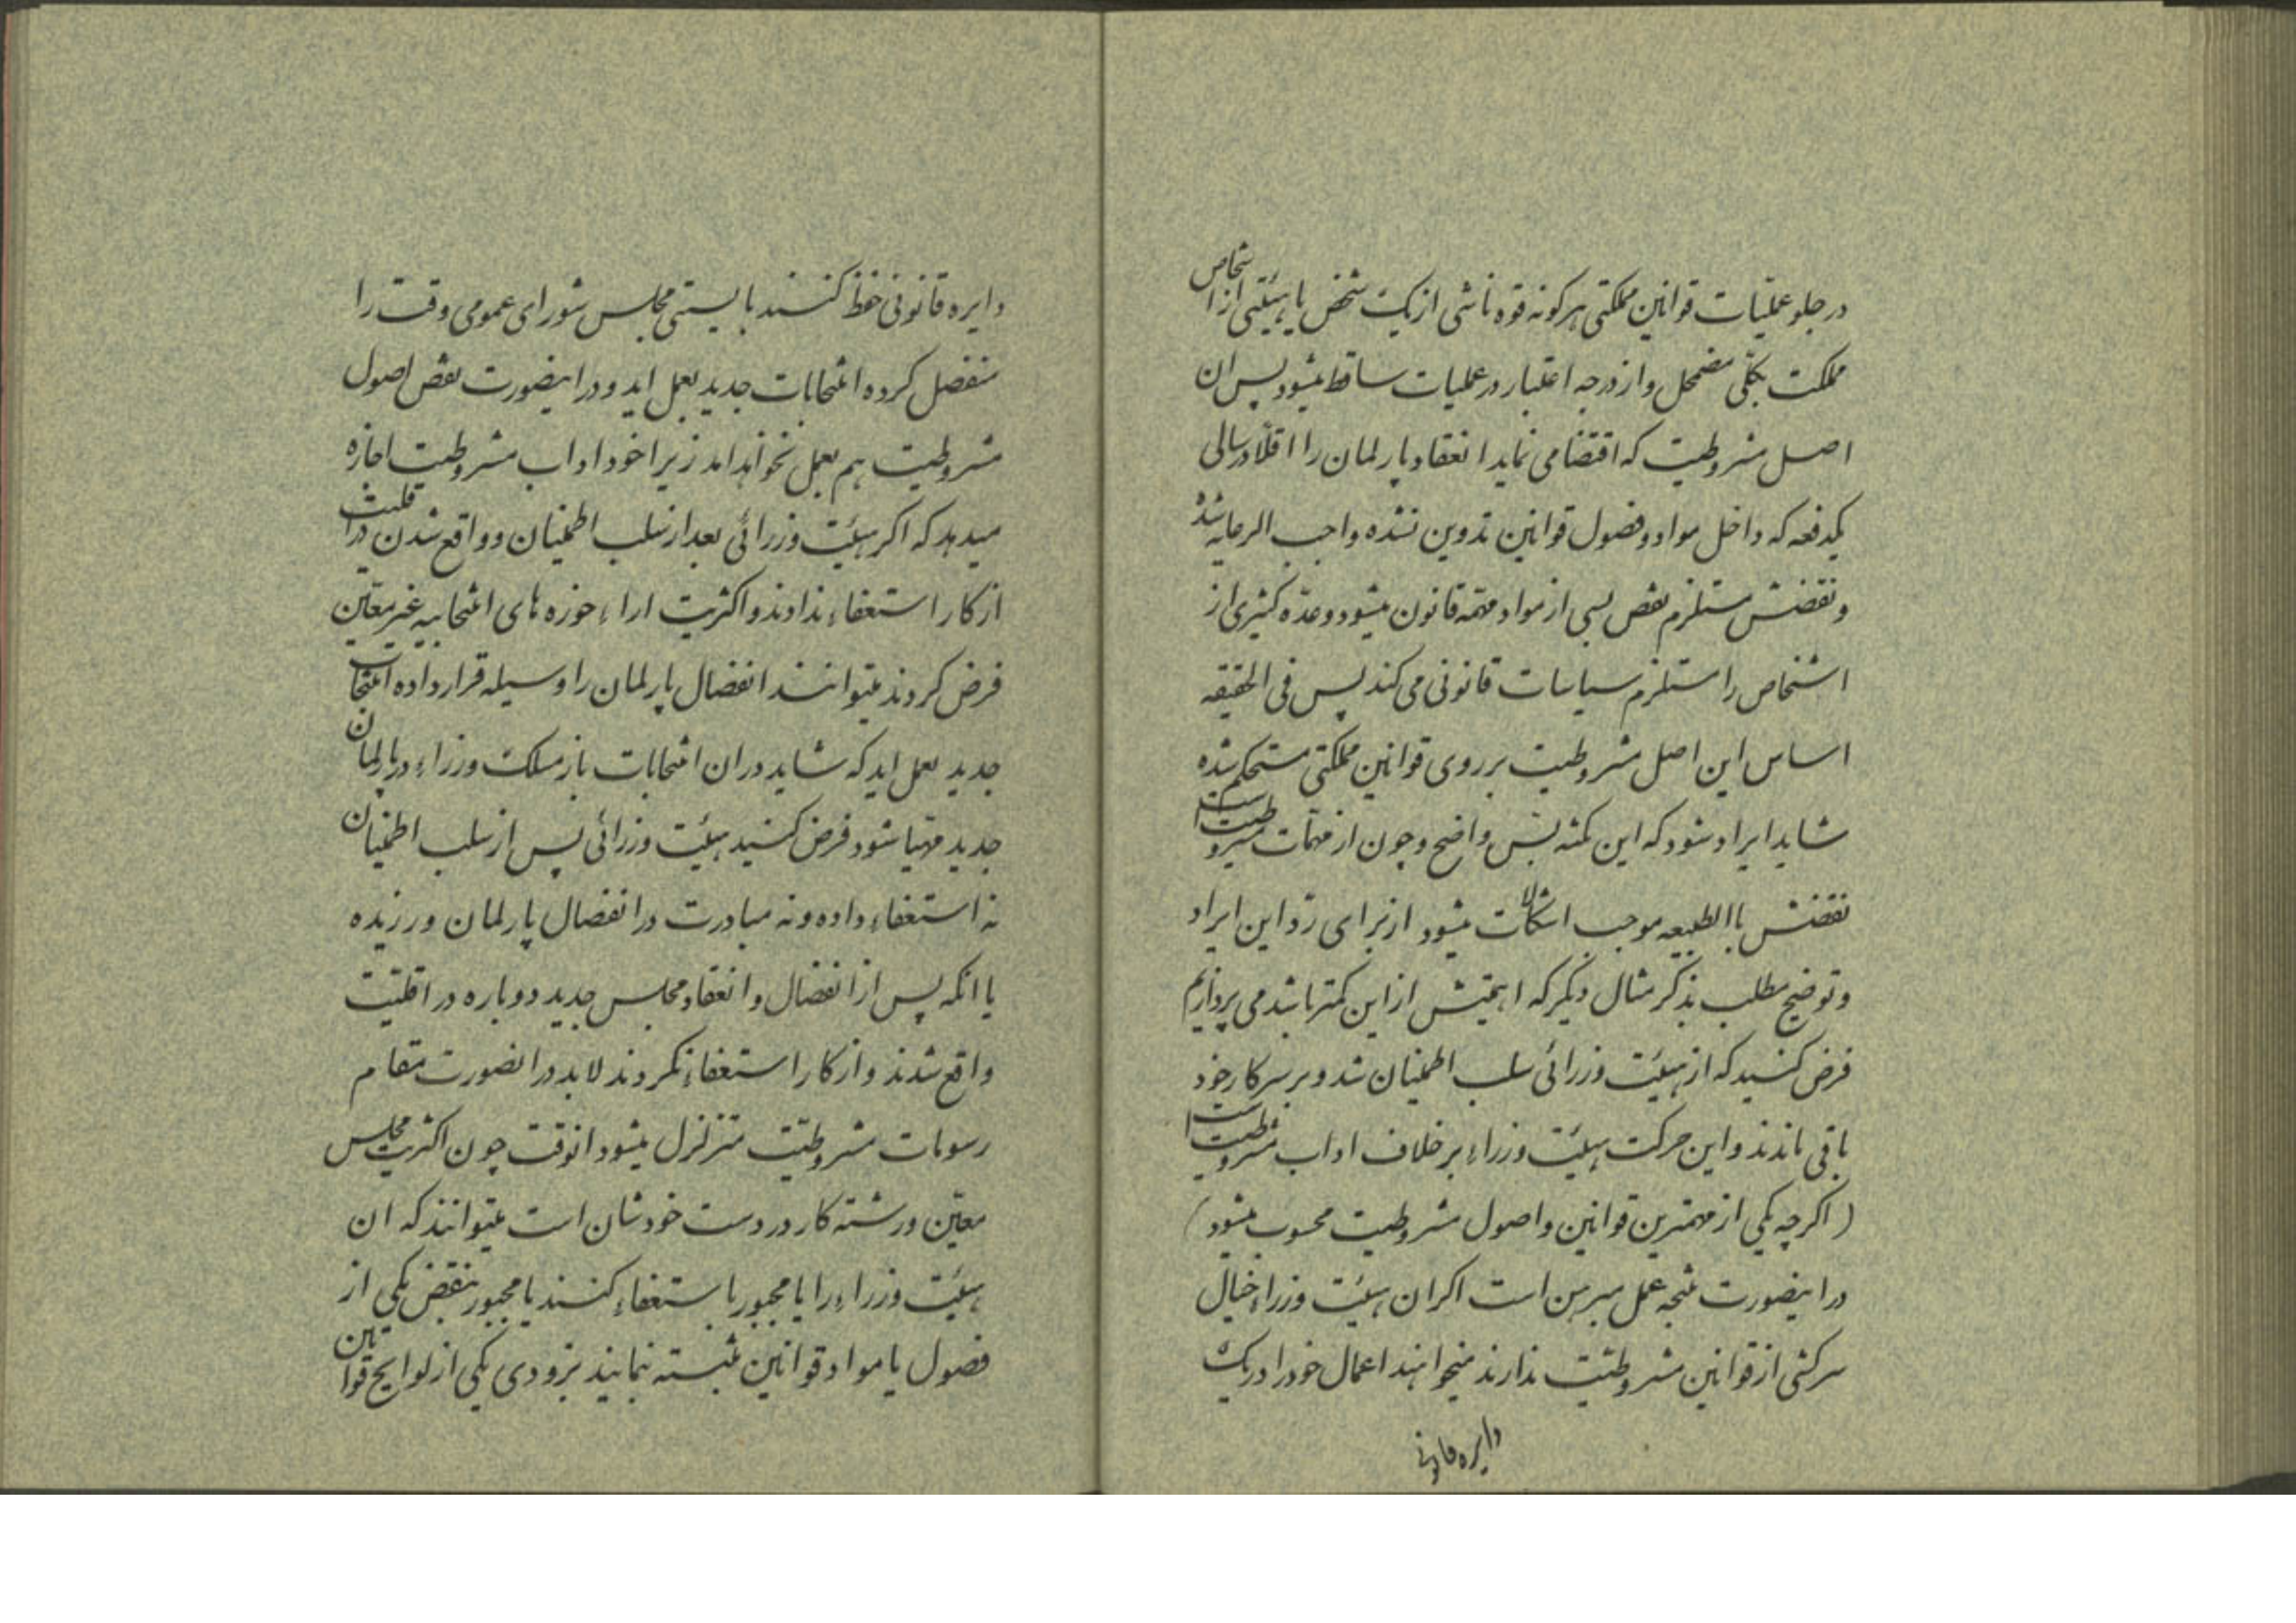 در جلو عملیات قوانین مملکتی هر کونه قوه ناشی از یک شخص یا هیئتی از اشخاص
مملکت بکلی مضمحل و از درجه اعتبار در عملیات ساقط میشود پس ان
اصل مشروطیت که اقتضا می نماید انعقاد پارلمان را اقلاً در سالی
یکدفعه که داخل مواد و فصول قوانین تدوین نشده واجب الرعایه شده
و نقضش مستلزم نقض بسی از مواد مهمه قانون میشود و عدّه کثیری از
اشخاص را مستلزم سیاسات قانونی می کند پس فی الحقیقه
اساس این اصل مشروطیت بر روی قوانین مملکتی مستحکم شده
شاید ایراد شود که این نکته بَس واضح و چون از مهمّات مشروطیت است
نقضش باالطبیعه موجب اشکالات میشود از برای ردّ این ایراد
و توضیح مطلب بذکر مثال دیکر که اهمیتش از این کمتر باشد می پردازیم
فرض کنسید که از هیئت وزرائی سلب اطمنیان شد و بر سر کار خود
باقی ماندند و این حرکت هیئت وزراء بر خلاف اداب مشروطیت است
(اکر چه یکی از مهمترین قوانین و اصول مشروطیت محسوب میشود)
در اینصورت نتیجه عمل مبرهن است اکر ان هیئت وزراء خیال
سرکشی از قوانین مشروطیّت ندارند میخواهند اعمال خود را در یک
دایره قانونی
دایره قانونی حفظ کنسند بایستی مجلس شورای عمومی وقت را
منفصل کرده انتخابات جدید بعمل اید و در اینصورت نقض اصول
مشروطیت هم بعمل نخواهد امد زیرا خود اداب مشروطیت اجازه
میدهد که اکر هیئت وزرائی بعد از سلب اطمنیان و واقع شدن در اقلیت
از کار استعفاء ندادند و اکثریت اراء حوزه های انتخابیه غیر معیّن
فرض کردند میتوانند انفصال پارلمان را وسیله قرار داده انتخابات
جدید بعمل اید که شاید در ان انتخابات باز مسلک وزراء در پارلمان
جدید مهیا شود فرض کنسید هیئت وزرائی پس از سلب اطمنیان
نه استعفاء داده و نه مبادرت در انفصال پارلمان ورزیده
یا انکه پس از انفصال و انعقاد مجلس جدید دوباره در اقلیّت
واقع شدند و از کار استعفاء نکردند لابد در انصورت مقام
رسومات مشروطیّت متزلزل میشود انوقت چون اکثریت مجلس
معیّن و رشته کار در دست خودشان است میتوانند که ان
هیئت وزراء را یا مجبور با ستعفاء کنسند یا مجبور بنقض یکی از
فصول یا مواد قوانین مثبته نمایند بزودی یکی از لوایح قوانین